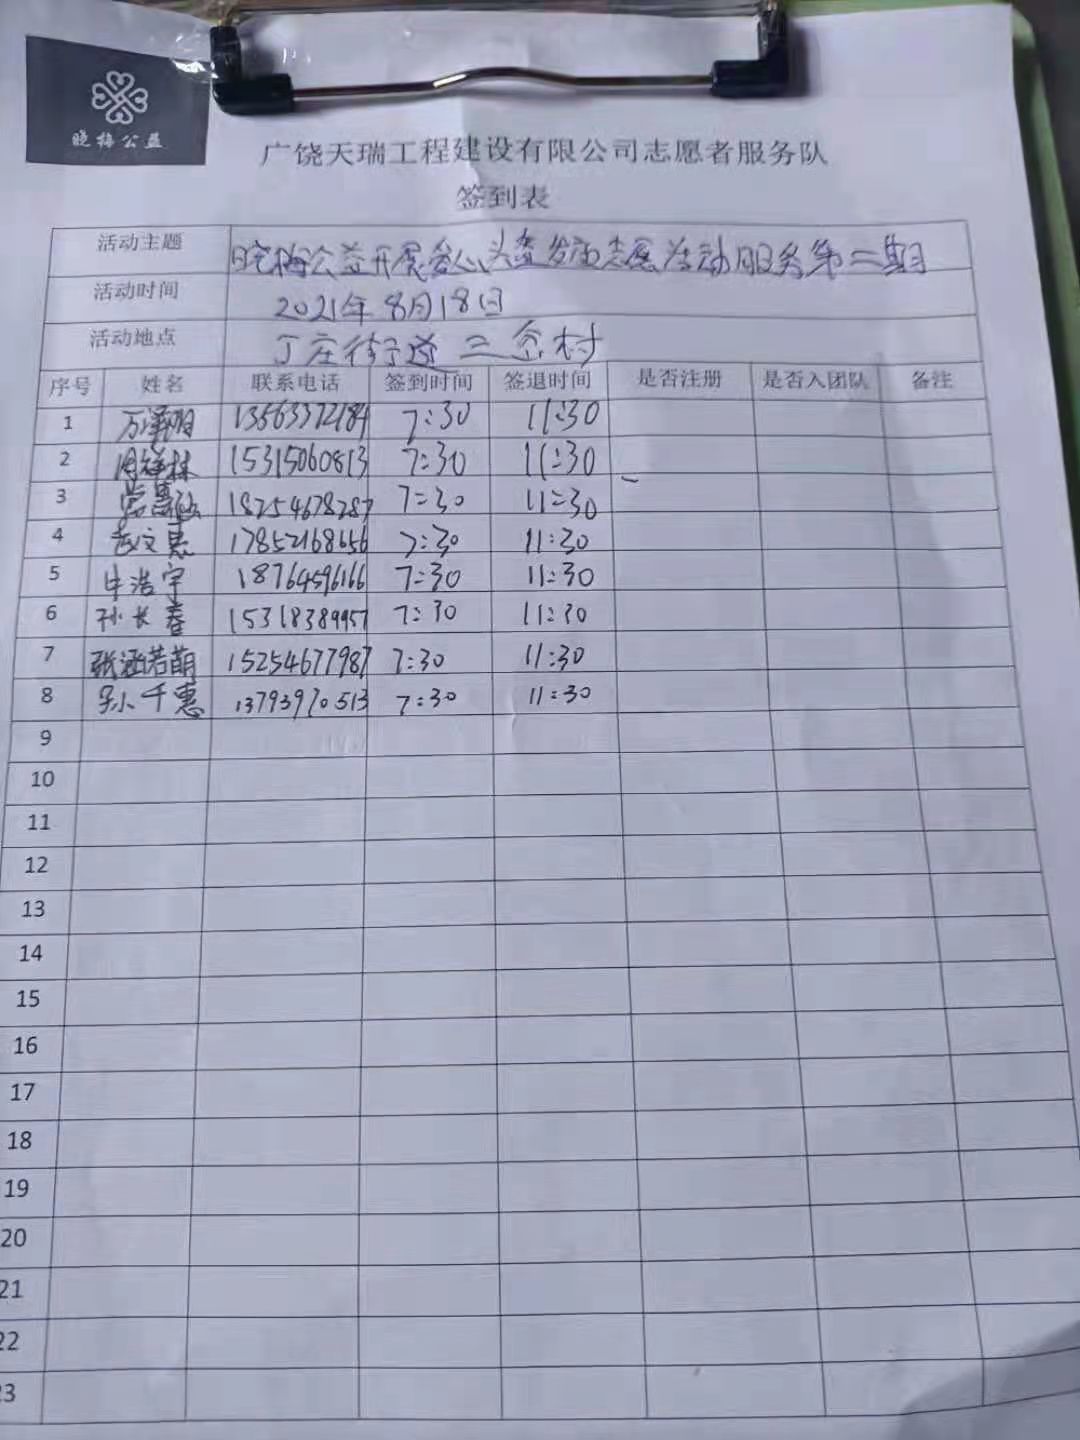 晓梅公益
广饶天瑞工程建设有限公司志愿者服务队
签到表
活动主题 晓梅公益开展爱心头盔发放志愿活动服务第二期
活动时间 2021年8月18日
活动地点 丁庄街道三岔村
序号 姓名 联系电话 签到时间 签退时间 是否注册 是否入团队 备注
1 万泽明 13563372184 7:30 11:30
2 周祥林 15315060813 7:30 11:30
3 18254678287 7:30 11:30
4 赵文惠 17852168656 7:30 11:30
5 牛浩宇 18764596166 7:30 11:30
6 孙长春 15318389957 7:30 11:30
7 张涵若萌 15254677987 7:30 11:30
8 千惠 13793970513 7:30 11:30
9
10
11
12
13
14
15
16
17
18
19
20
21
22
23